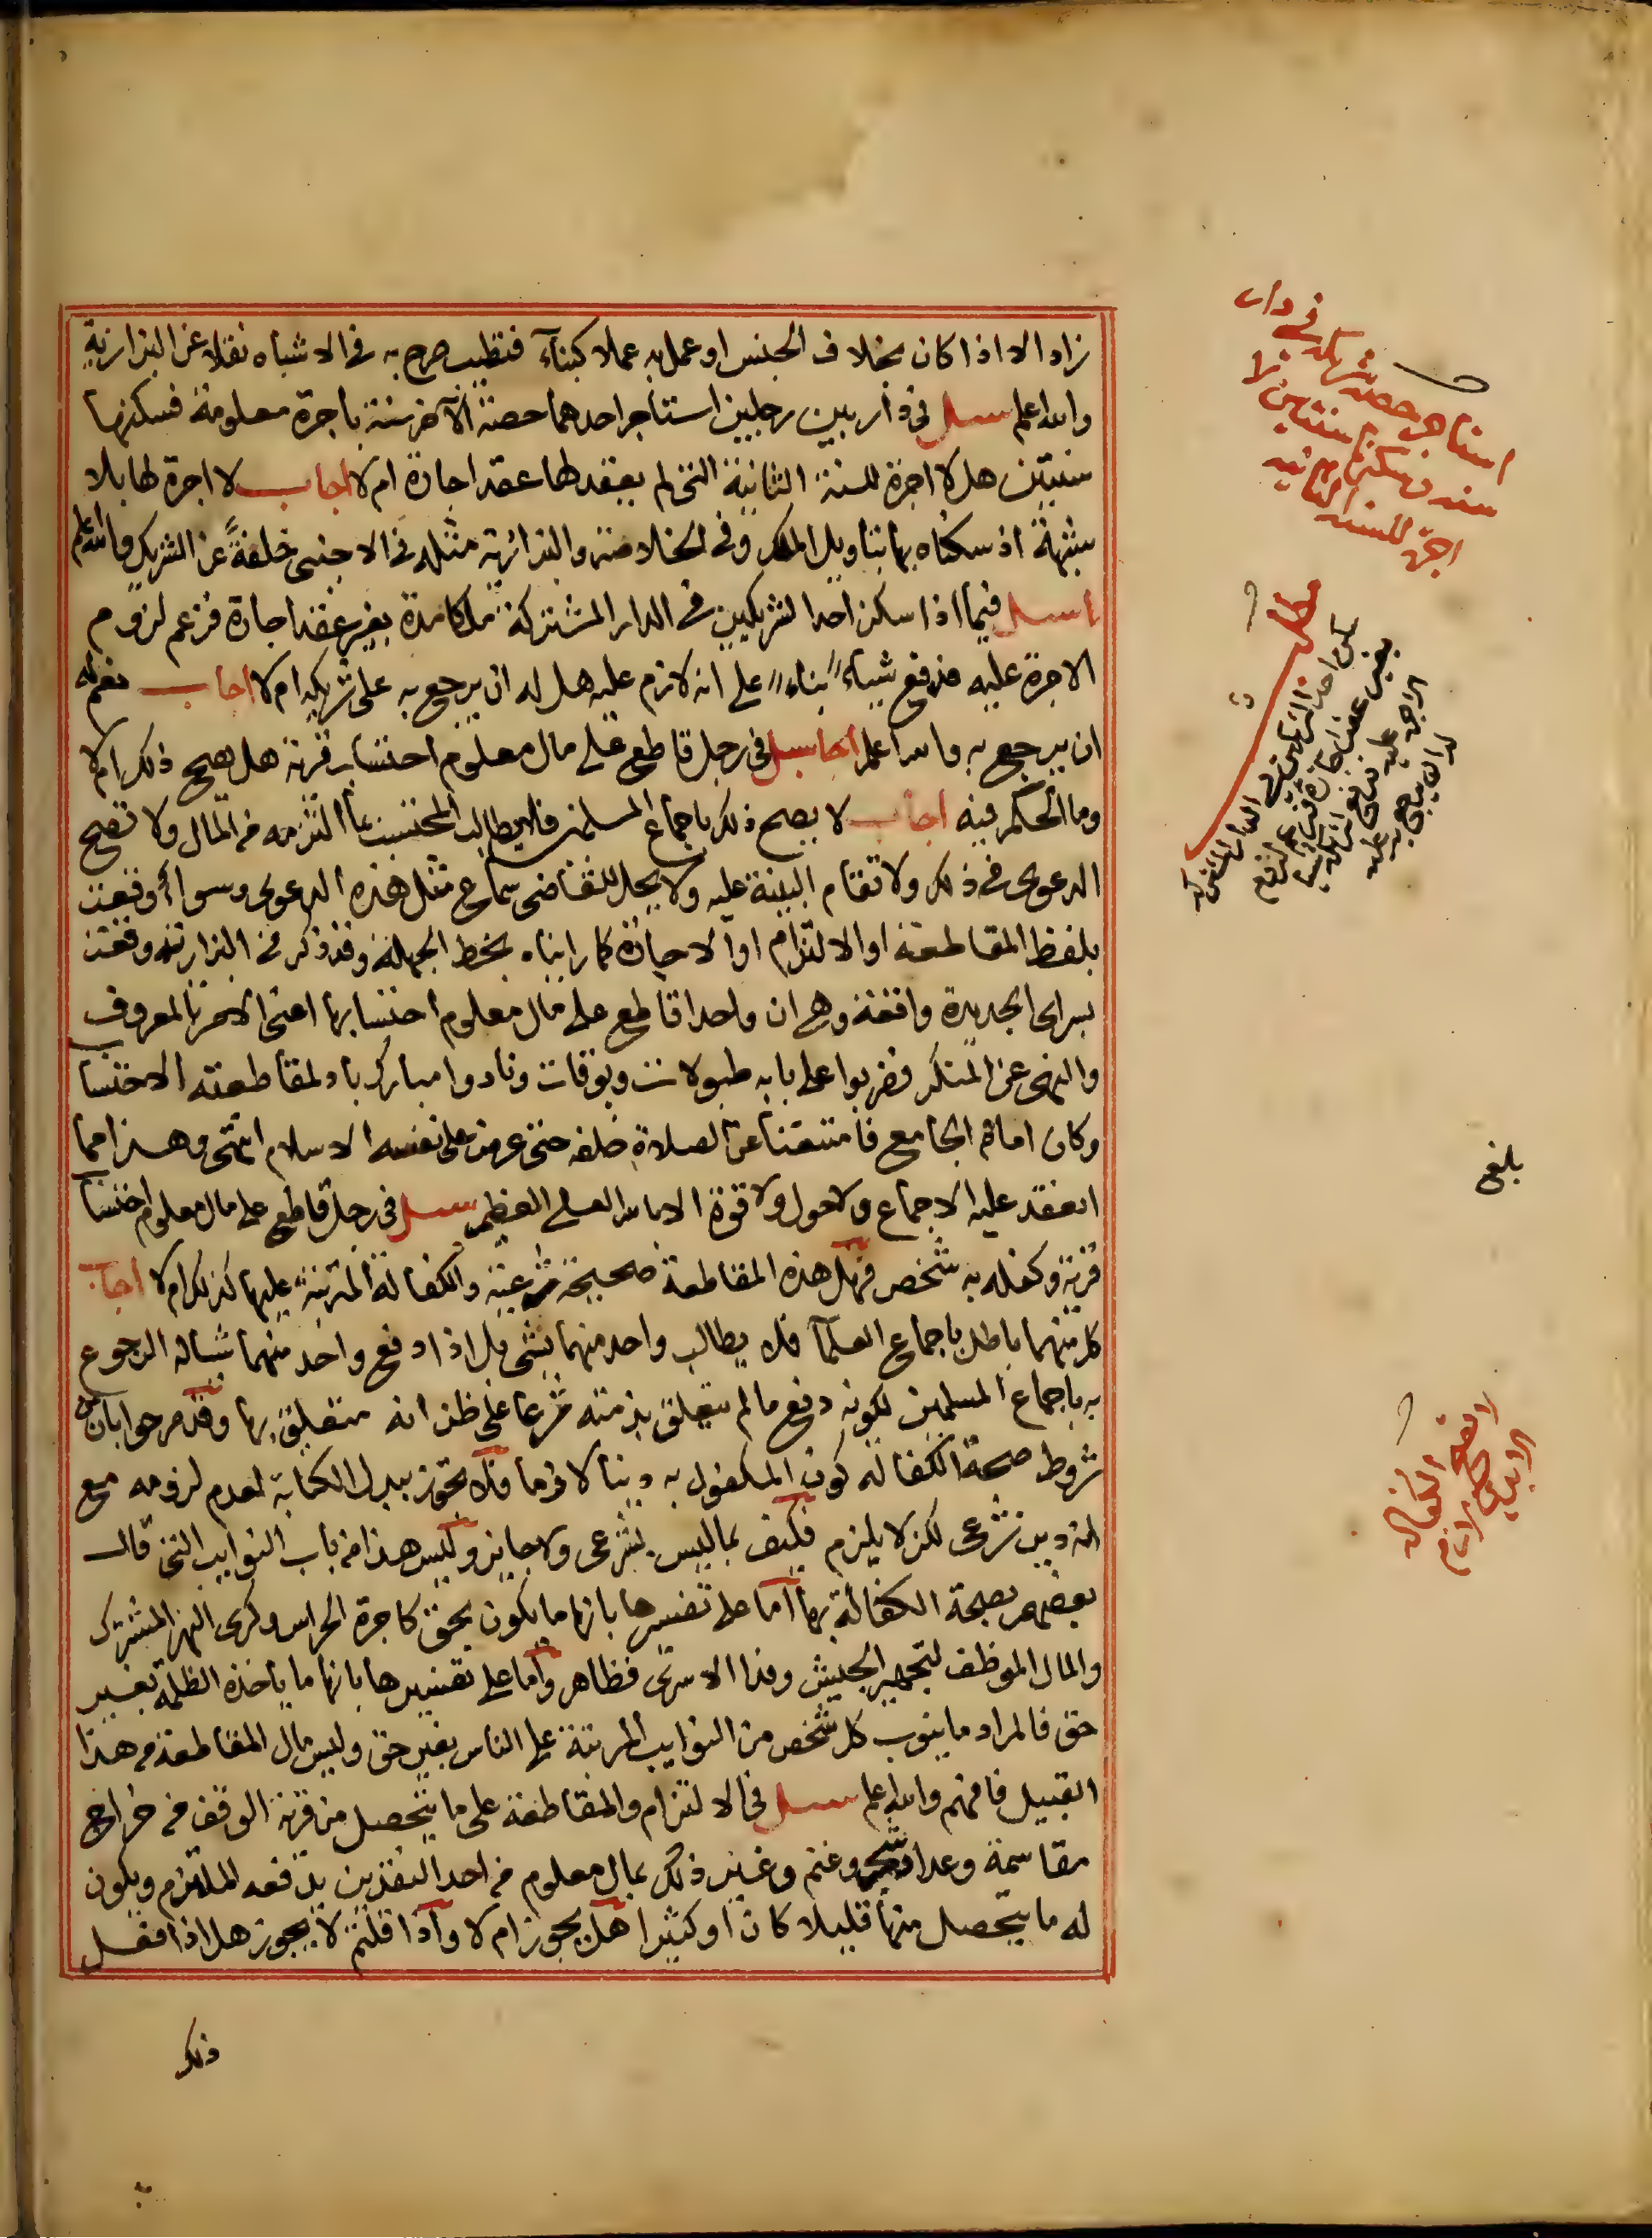 زاد الا اذا كان بخلاف الجنس او عمل به عملا كبناء فتطيب صرح به في الاشباه نقلا عن البزازية
والله اعلم سئل في دار بين رجلين استاجر احدهما حصة الآخر سنة باجرة معلومة فسكنها
سنتين هل لا اجرة للسنة الثانية التي لم يعقد لها عقد اجارة ام لا اجاب لا اجرة لها بلا
شبهة اذ سكناه بها بتاويل الملك وفي الخلاصة والبزازية مثله في الاجنبي خلفة عن الشريك والله اعلم
سئل فيما اذا سكن احد الشريكين في الدار المشتركة ملكا مدة بغير عقد اجارة فزعم لزوم
الاجرة عليه فدفع شيأ بناء على انه لازم عليه هل له ان يرجع به على شريكه ام لا اجاب نعم له
ان يرجع به والله اعلم سئل في رجل قاطع على مال معلوم احتساب قرية هل يصح ذلك ام لا
وما الحكم فيه اجاب لا يصح ذلك باجماع المسلمين فلا يطالب المحتسب بما التزمه من المال ولا تصح
الدعوى في ذلك ولا تقام البينة عليه ولا يحل للقاضي سماع مثل هذه الدعوى وسوا أوقعت
بلفظ المقاطعة او الالتزام او الاجارة كما رايناه بخط الجهلة وقد ذكر في البزازية وقعت
بسراى الجديدة واقعة وهي ان واحدا قاطع على مال معلوم احتسابها اعني الامر بالمعروف
والنهي عن المنكر فضربوا على بابه طبولات وبوقات ونادوا مبارك باد لمقاطعته الاحتسا
وكان امام الجامع فامتنعنا عن الصلاة خلفه حتى عرض على نفسه الاسلام انتهى وهذا مما
انعقد عليه الاجماع ولا حول ولا قوة الا بالله العلي العظيم سئل في رجل قاطع على مال معلوم احتسا
قرية وكفله به شخص فهل هذه المقاطعة صحيحة شرعية والكفالة المترتبة عليها كذلك ام لا اجاب
كل منهما باطل باجماع العلمآ فلا يطالب واحد منهما بشى بل اذا دفع واحد منهما شيأ له الرجوع
به باجماع المسلمين لكونه دفع ما لم يتعلق بذمته شرعا على ظن انه متعلق بها وقد صرحوا بان من
شروط صحة الكفالة كون المكفول به دينا لازما فلا تجوز ببدل الكتابة لعدم لزومه مع
انه دين شرعي لكن لا يلزم فكيف بما ليس بشرعى ولا جايز وليس هذا من باب النوايب التي قال
بعضهم بصحة الكفالة بها اما على تفسيرها بانها ما يكون بحق كاجرة الحراس وكرى النهر المشترك
والمال الموظف لتجهيز الجيش وفدا الاسرى فظاهر واما على تفسيرها بانها ما ياخذه الظلمة بغير
حق فالمراد ما ينوب كل شخص من النوايب المرتبة على الناس بغير حق وليس مال المقاطعة من هذا
القبيل فافهم والله اعلم سئل في الالتزام والمقاطعة على ما يتحصل من قرية الوقف من خراج
مقاسمة وعداد شجر وغنم وغير ذلك بمال معلوم من احد النقدين يدفعه الملتزم ويكون
له ما يتحصل منها قليلا كان او كثيرا هل يجوز ام لا واذا قلتم لا يجوز هل اذا فعل
ذلك
استاجر حصة شريكه في دار
سنة وسكنها سنتين لا
اجرة للسنة الثانية
مطلب
سكن احد الشريكين في الدار المشتركة
بغير عقد اجارة فزعم لزوم
الاجرة عليه فدفع لشريكه شيا
له ان يرجع به عليه
بلغ
لا تصح الكفالة
الا بدين لازم